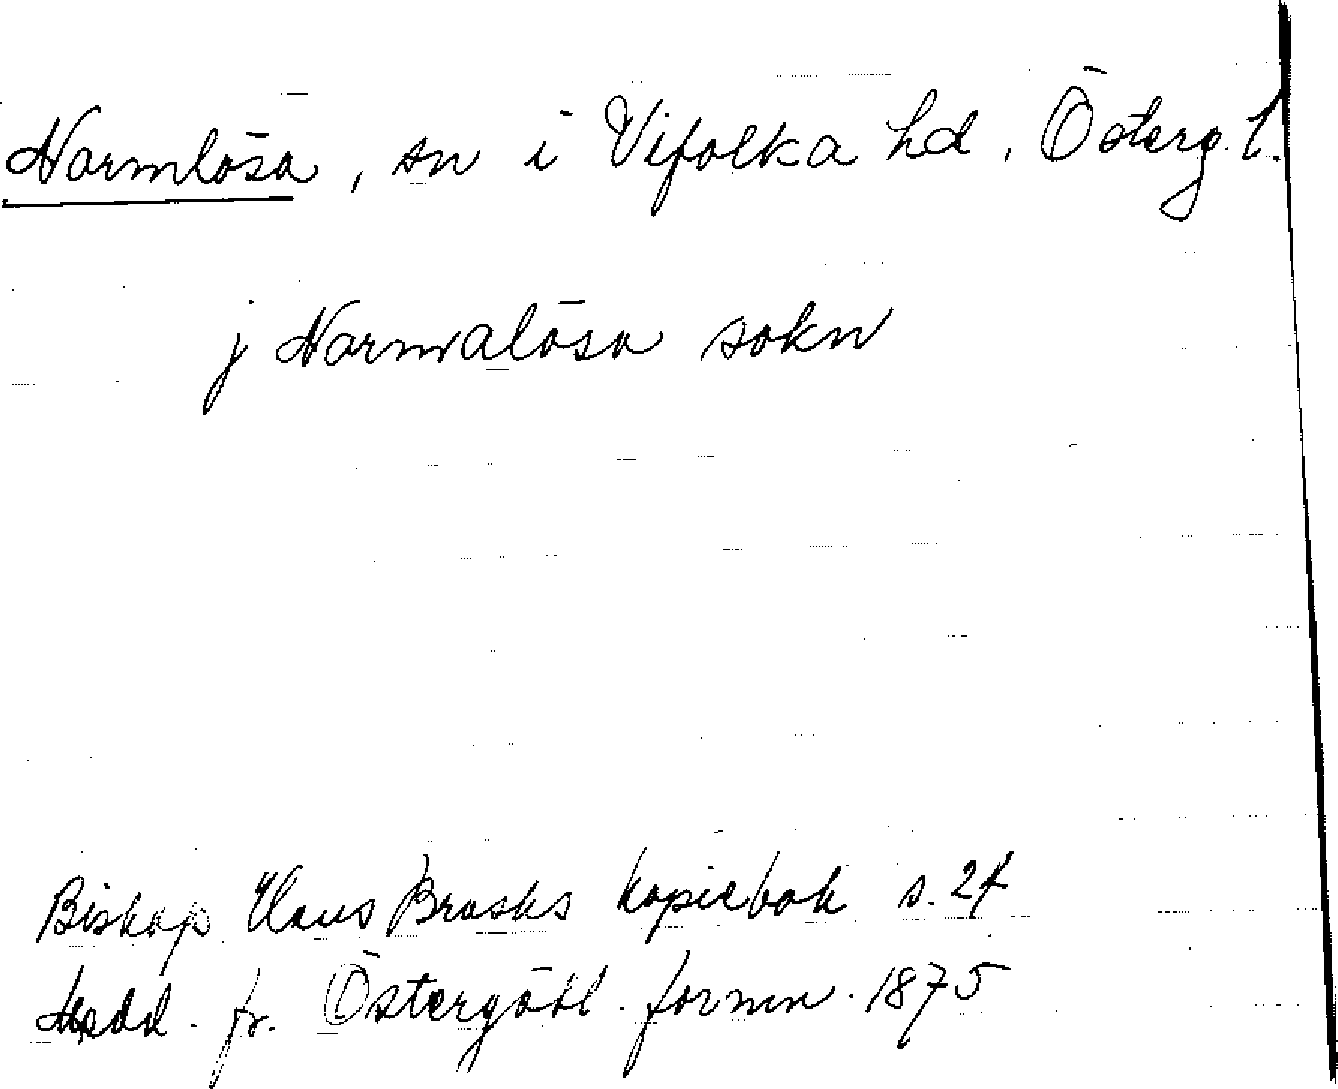 Normlösa, sn i Vifolka hd, Österg. l.
j Normalösa sokn
Biskop Hans Brasks kopiebok s. 24
Medd. fr. Östergötl. fornm. 1875